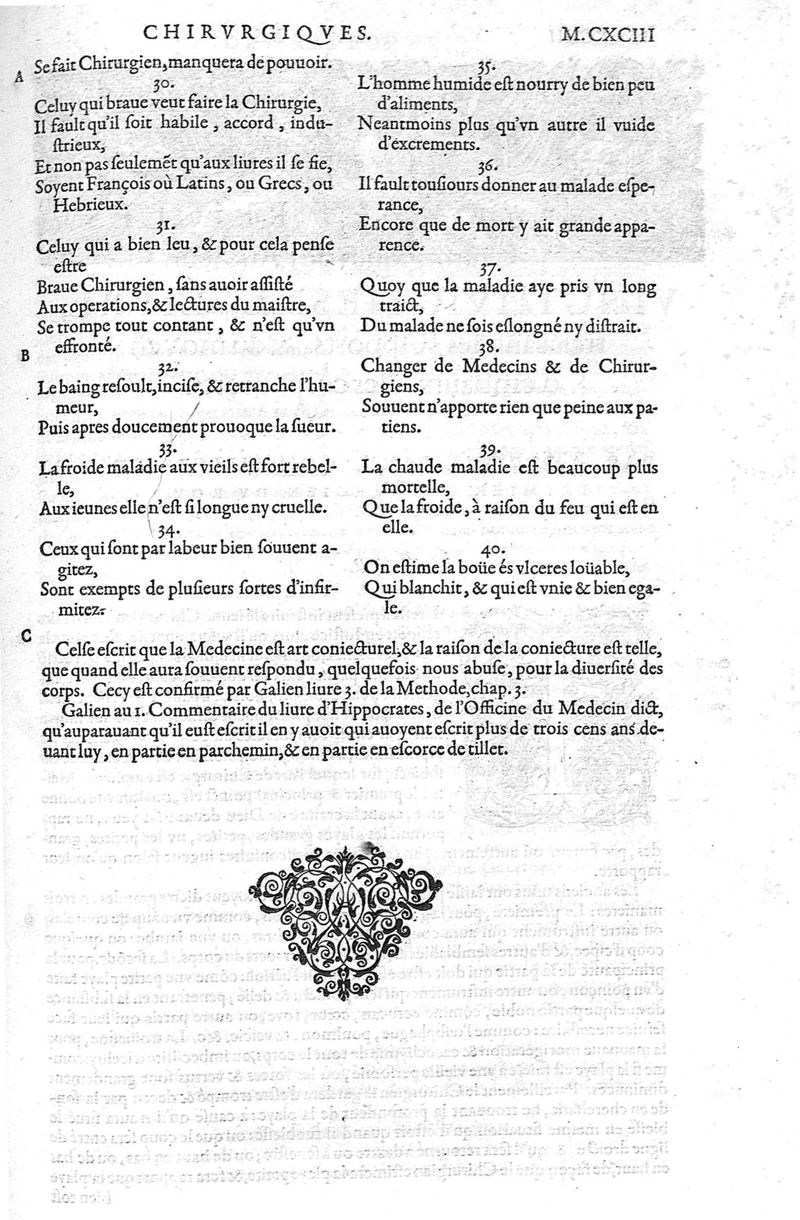 CHIRVRGIQVES.
M.CXCIII
A
Se fait Chirurgien, manquera de pouuoir.
30.
Celuy qui braue veut faire la Chirurgie,
Il fault qu'il ſoit habile, accord, indu-
ſtrieux,
Et non pas ſeulemẽt qu'aux liures il ſe fie,
Soyent François où Latins, ou Grecs, ou
Hebrieux.
31.
Celuy qui a bien leu, & pour cela penſe
eſtre
Braue Chirurgien, ſans auoir aſſiſté
Aux operations, & lectures du maiſtre,
Se trompe tout contant, & n'eſt qu'vn
effronté.
B
32.
Le baing reſoult, inciſe, & retranche l'hu-
meur,
Puis apres doucement prouoque la ſueur.
33.
La froide maladie aux vieils eſt fort rebel-
le,
Aux ieunes elle n'eſt ſi longue ny cruelle.
34.
Ceux qui ſont par labeur bien ſouuent a-
gitez,
Sont exempts de pluſieurs ſortes d'infir-
mitez.
35.
L'homme humide eſt nourry de bien peu
d'aliments,
Neantmoins plus qu'vn autre il vuide
d'excrements.
36.
Il fault touſiours donner au malade eſpe-
rance,
Encore que de mort y ait grande appa-
rence.
37.
Quoy que la maladie aye pris vn long
traict,
Du malade ne ſois eſlongné ny diſtrait.
38.
Changer de Medecins & de Chirur-
giens,
Souuent n'apporte rien que peine aux pa-
tiens.
39.
La chaude maladie eſt beaucoup plus
mortelle,
Que la froide, à raiſon du feu qui eſt en
elle.
40.
On eſtime la boüe és vlceres loüable,
Qui blanchit, & qui eſt vnie & bien ega-
le.
C
Celſe eſcrit que la Medecine eſt art coniecturel, & la raiſon de la coniecture eſt telle,
que quand elle aura ſouuent reſpondu, quelquefois nous abuſe, pour la diuerſité des
corps. Cecy eſt confirmé par Galien liure 3. de la Methode, chap. 3.
Galien au 1. Commentaire du liure d'Hippocrates, de l'Officine du Medecin dict,
qu'auparauant qu'il euſt eſcrit il en y auoit qui auoyent eſcrit plus de trois cens ans de-
uant luy, en partie en parchemin, & en partie en eſcorce de tillet.